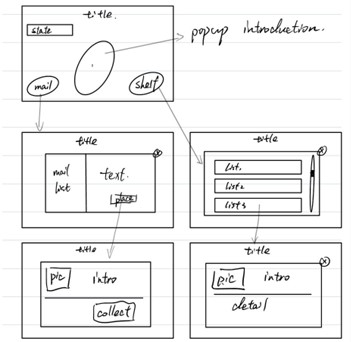 title.
state
popup introduction.
mail
shelf
title
mail
list
text.
place
title
list1
list2
list3
title
pic
intro
collect
title
pic
intro
detail